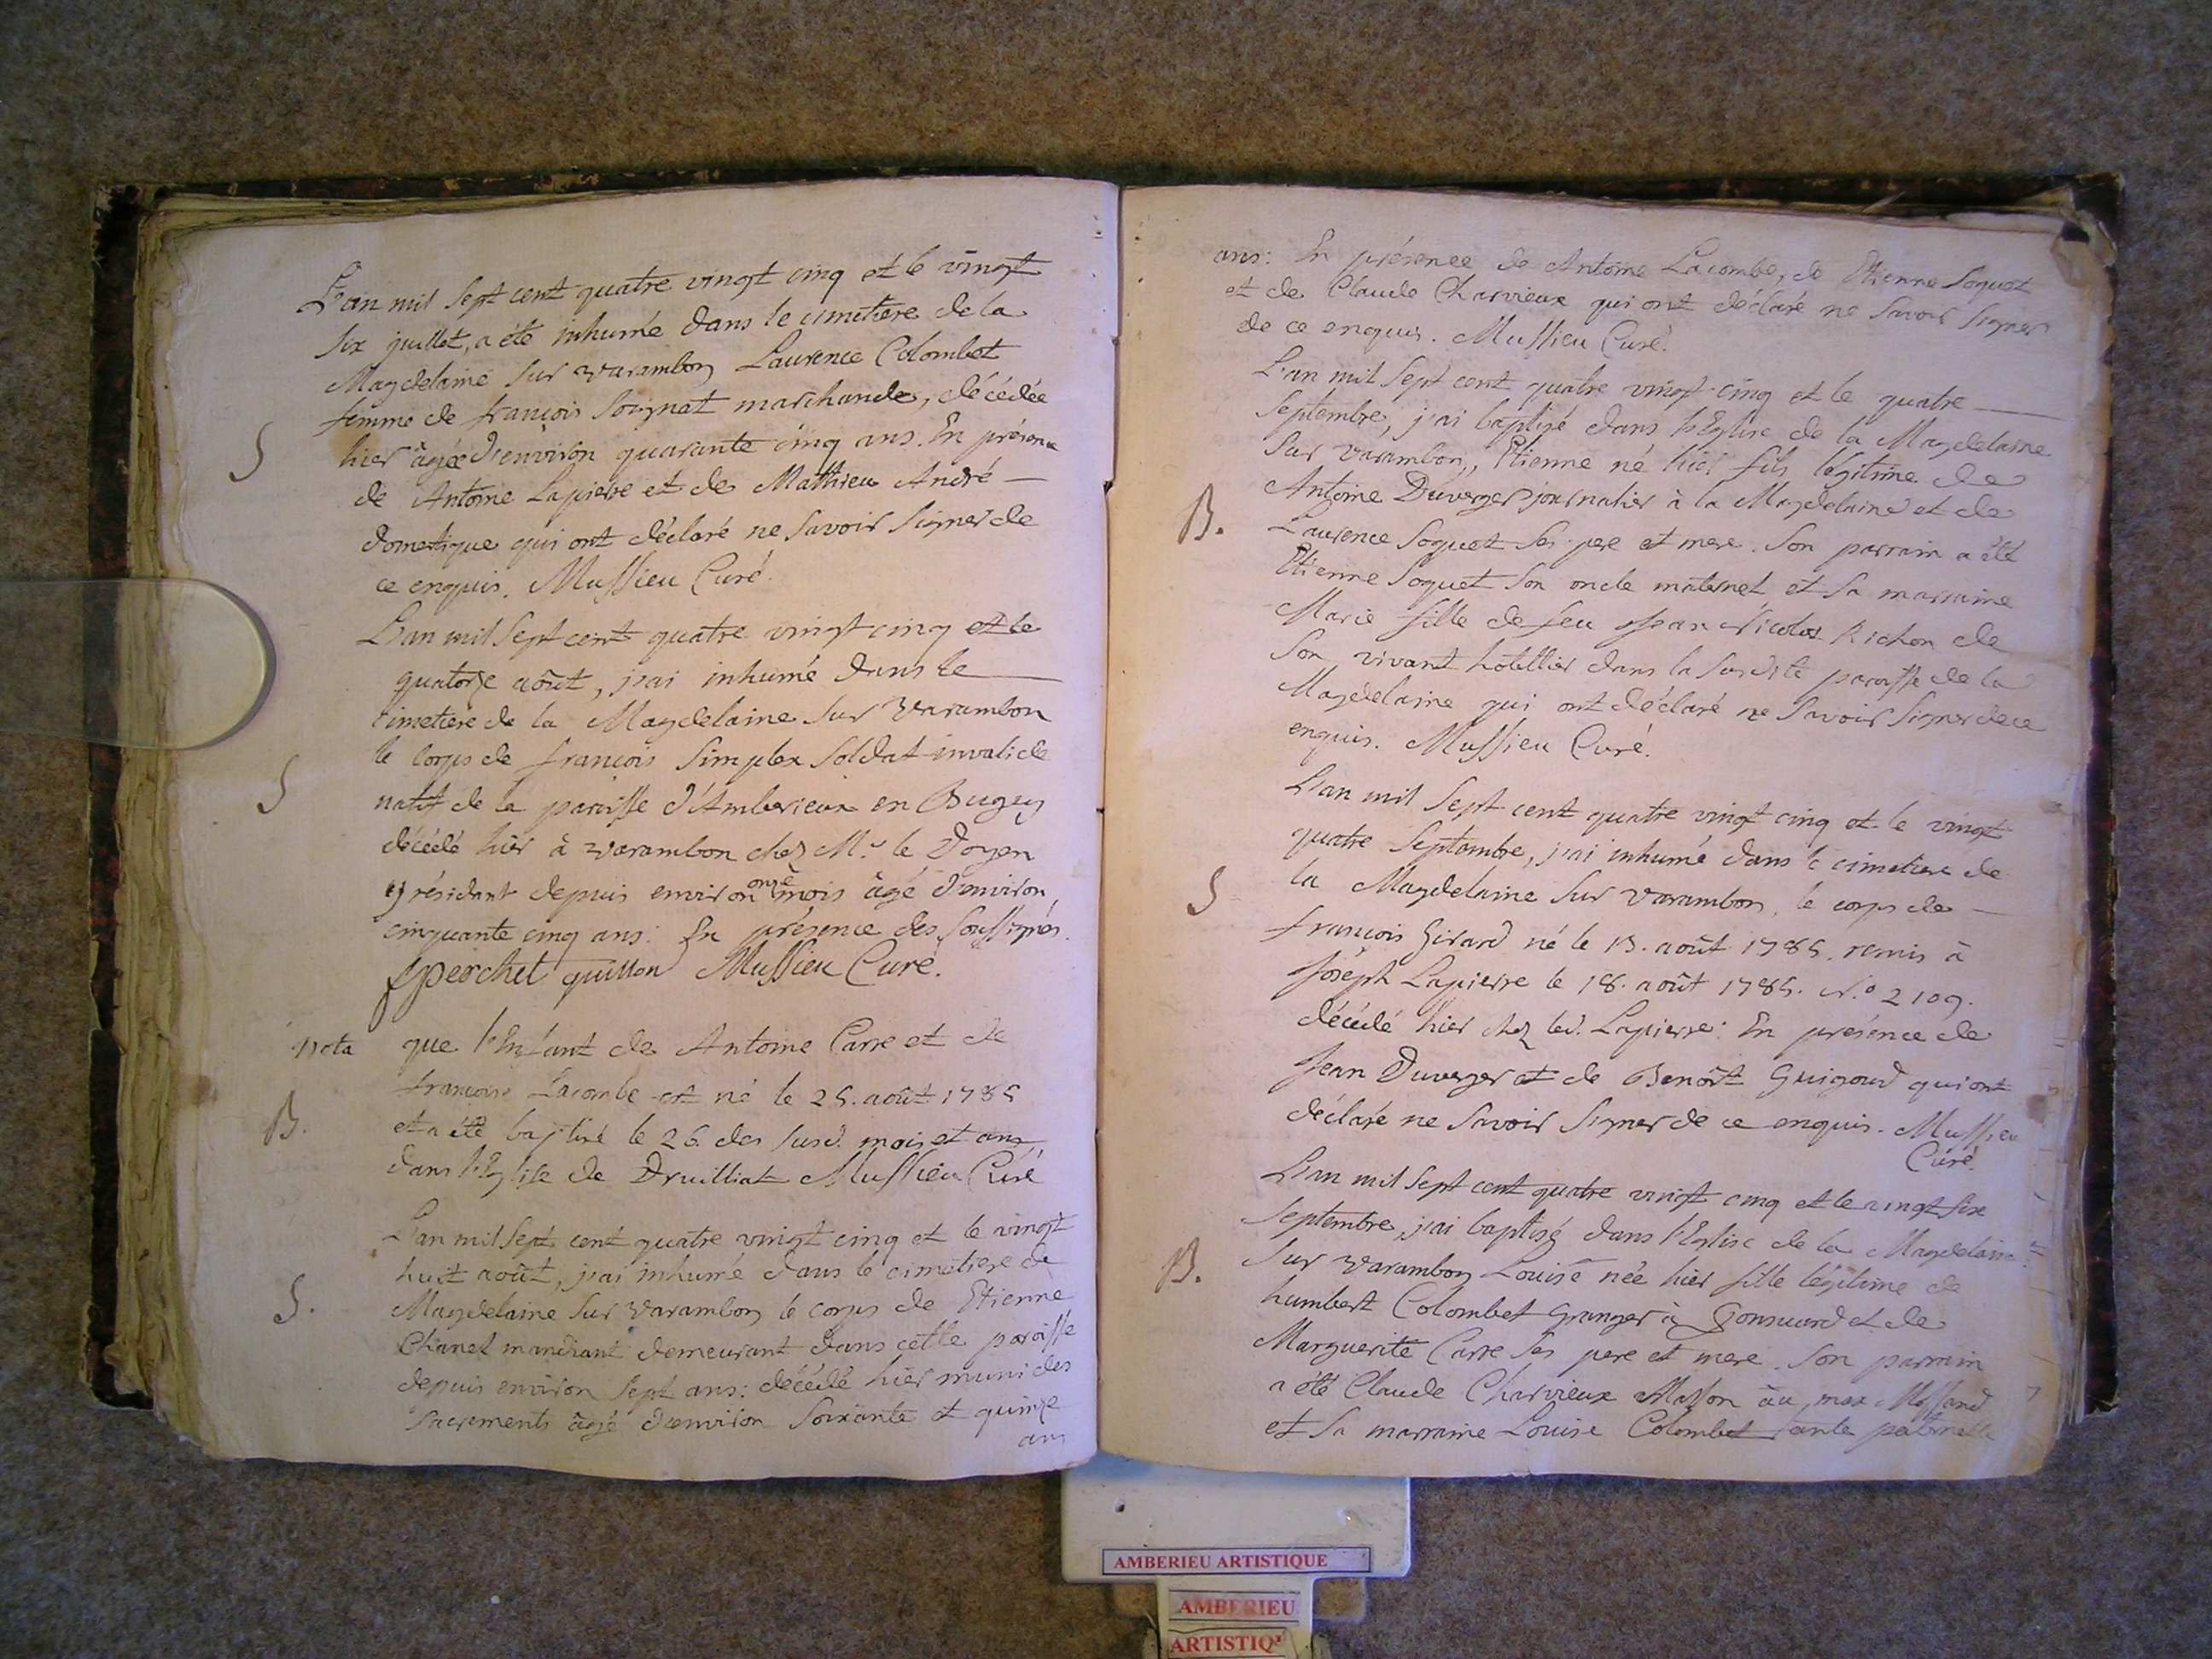 L'an mil Sept cent quatre vingt cinq et le vingt
Six juillet, a été inhumé dans le cimetiere de la
Magdelaine Sur varambon Laurence Colombet
femme de françois Soignet marchande, décédée
S
hier âgée d'environ quarante cinq ans. En présence
de Antoine Lapierre et de Matthieu André
domestique qui ont déclaré ne Savoir Signer de
ce enquis. Mussieu Curé.
L'an mil Sept cent quatre vingt cinq et le
quatorze août, j'ai inhumé dans le
cimetiere de la Magdelaine Sur Varambon
le Corps de françois Simplex Soldat invalide
S
natif de la paroisse d'Amberieux en Bugey
décédé hier à varambon chez Mr. le Doyen
y résidant depuis environ onze mois âgé d'environ
cinquante cinq ans: En présence des Soussignés.
perchet quillon Mussieu Curé.
Nota que l'Enfant de Antoine Carre et de
françoise Lacombe est né le 25. août 1785
B.
et a été baptisé le 26. des susd. mois et ans
dans l'Eglise de Druilliat Mussieu Curé
L'an mil Sept cent quatre vingt cinq et le vingt
huit août, j'ai inhumé dans le cimetiere de
S.
Magdelaine Sur varambon le corps de Etienne
Chanel mandiant demeurant dans cette paroisse
depuis environ Sept ans: décédé hier muni des
Sacrements âgé d'environ Soixante et quinze
ans
ans: En présence de Antoine Lacombe, de Etienne Soquet
et de Claude Charvieux qui ont déclaré ne Savoir Signer
de ce enquis. Mussieu Curé.
L'an mil Sept cent quatre vingt cinq et le quatre
Septembre, j'ai baptisé dans l'Eglise de la Magdelaine
Sur varambon, Etienne né hier fils légitime de
B.
Antoine Duverger journalier à la Magdelaine et de
Laurence Soquet Ses pere et mere. Son parrain a été
Etienne Soquet Son oncle maternel et Sa marraine
Marie fille de feu Jean Nicolas Richon de
Son vivant hotellier dans la Susdite paroisse de la
Magdelaine qui ont déclaré ne Savoir Signer de ce
enquis. Mussieu Curé.
L'an mil Sept cent quatre vingt cinq et le vingt
quatre Septembre, j'ai inhumé dans le cimetiere de
S
la Magdelaine Sur varambon, le corps de
françois Girard né le 13. août 1785. remis à
Joseph Lapierre le 18. août 1785. N.o 2109.
décédé hier chez led. Lapierre: En présence de
Jean Duverger et de Benoît Guigoud qui ont
déclaré ne Savoir Signer de ce enquis. Mussieu
Curé.
L'an mil Sept cent quatre vingt cinq et le vingt Six
Septembre, j'ai baptisé dans l'Eglise de la Magdelaine
B.
Sur varambon Louise née hier fille légitime de
humbert Colombet Granger à et de
Marguerite Carre Ses pere et mere. Son parrain
a été Claude Charvieux Masson au
et Sa marraine Louise Colombet tante paternelle
AMBERIEU ARTISTIQUE
AMBERIEU
ARTISTIQ